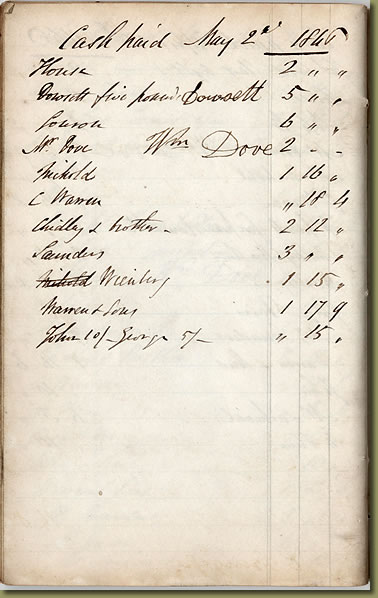 Cash paid May 2nd 1846
House 2 " "
Dowsett five pounds Dowsett 5 " "
6 " "
Mr Dove Wm Dove 2 - -
Nichold 1 16 "
C Warren " 18 4
Chidley & brother - 2 12 "
Saunders 3 " "
Nichold Wienberg 1 15 "
Warren & Sons 1 17 9
John 10/- George 5/- " 15 "